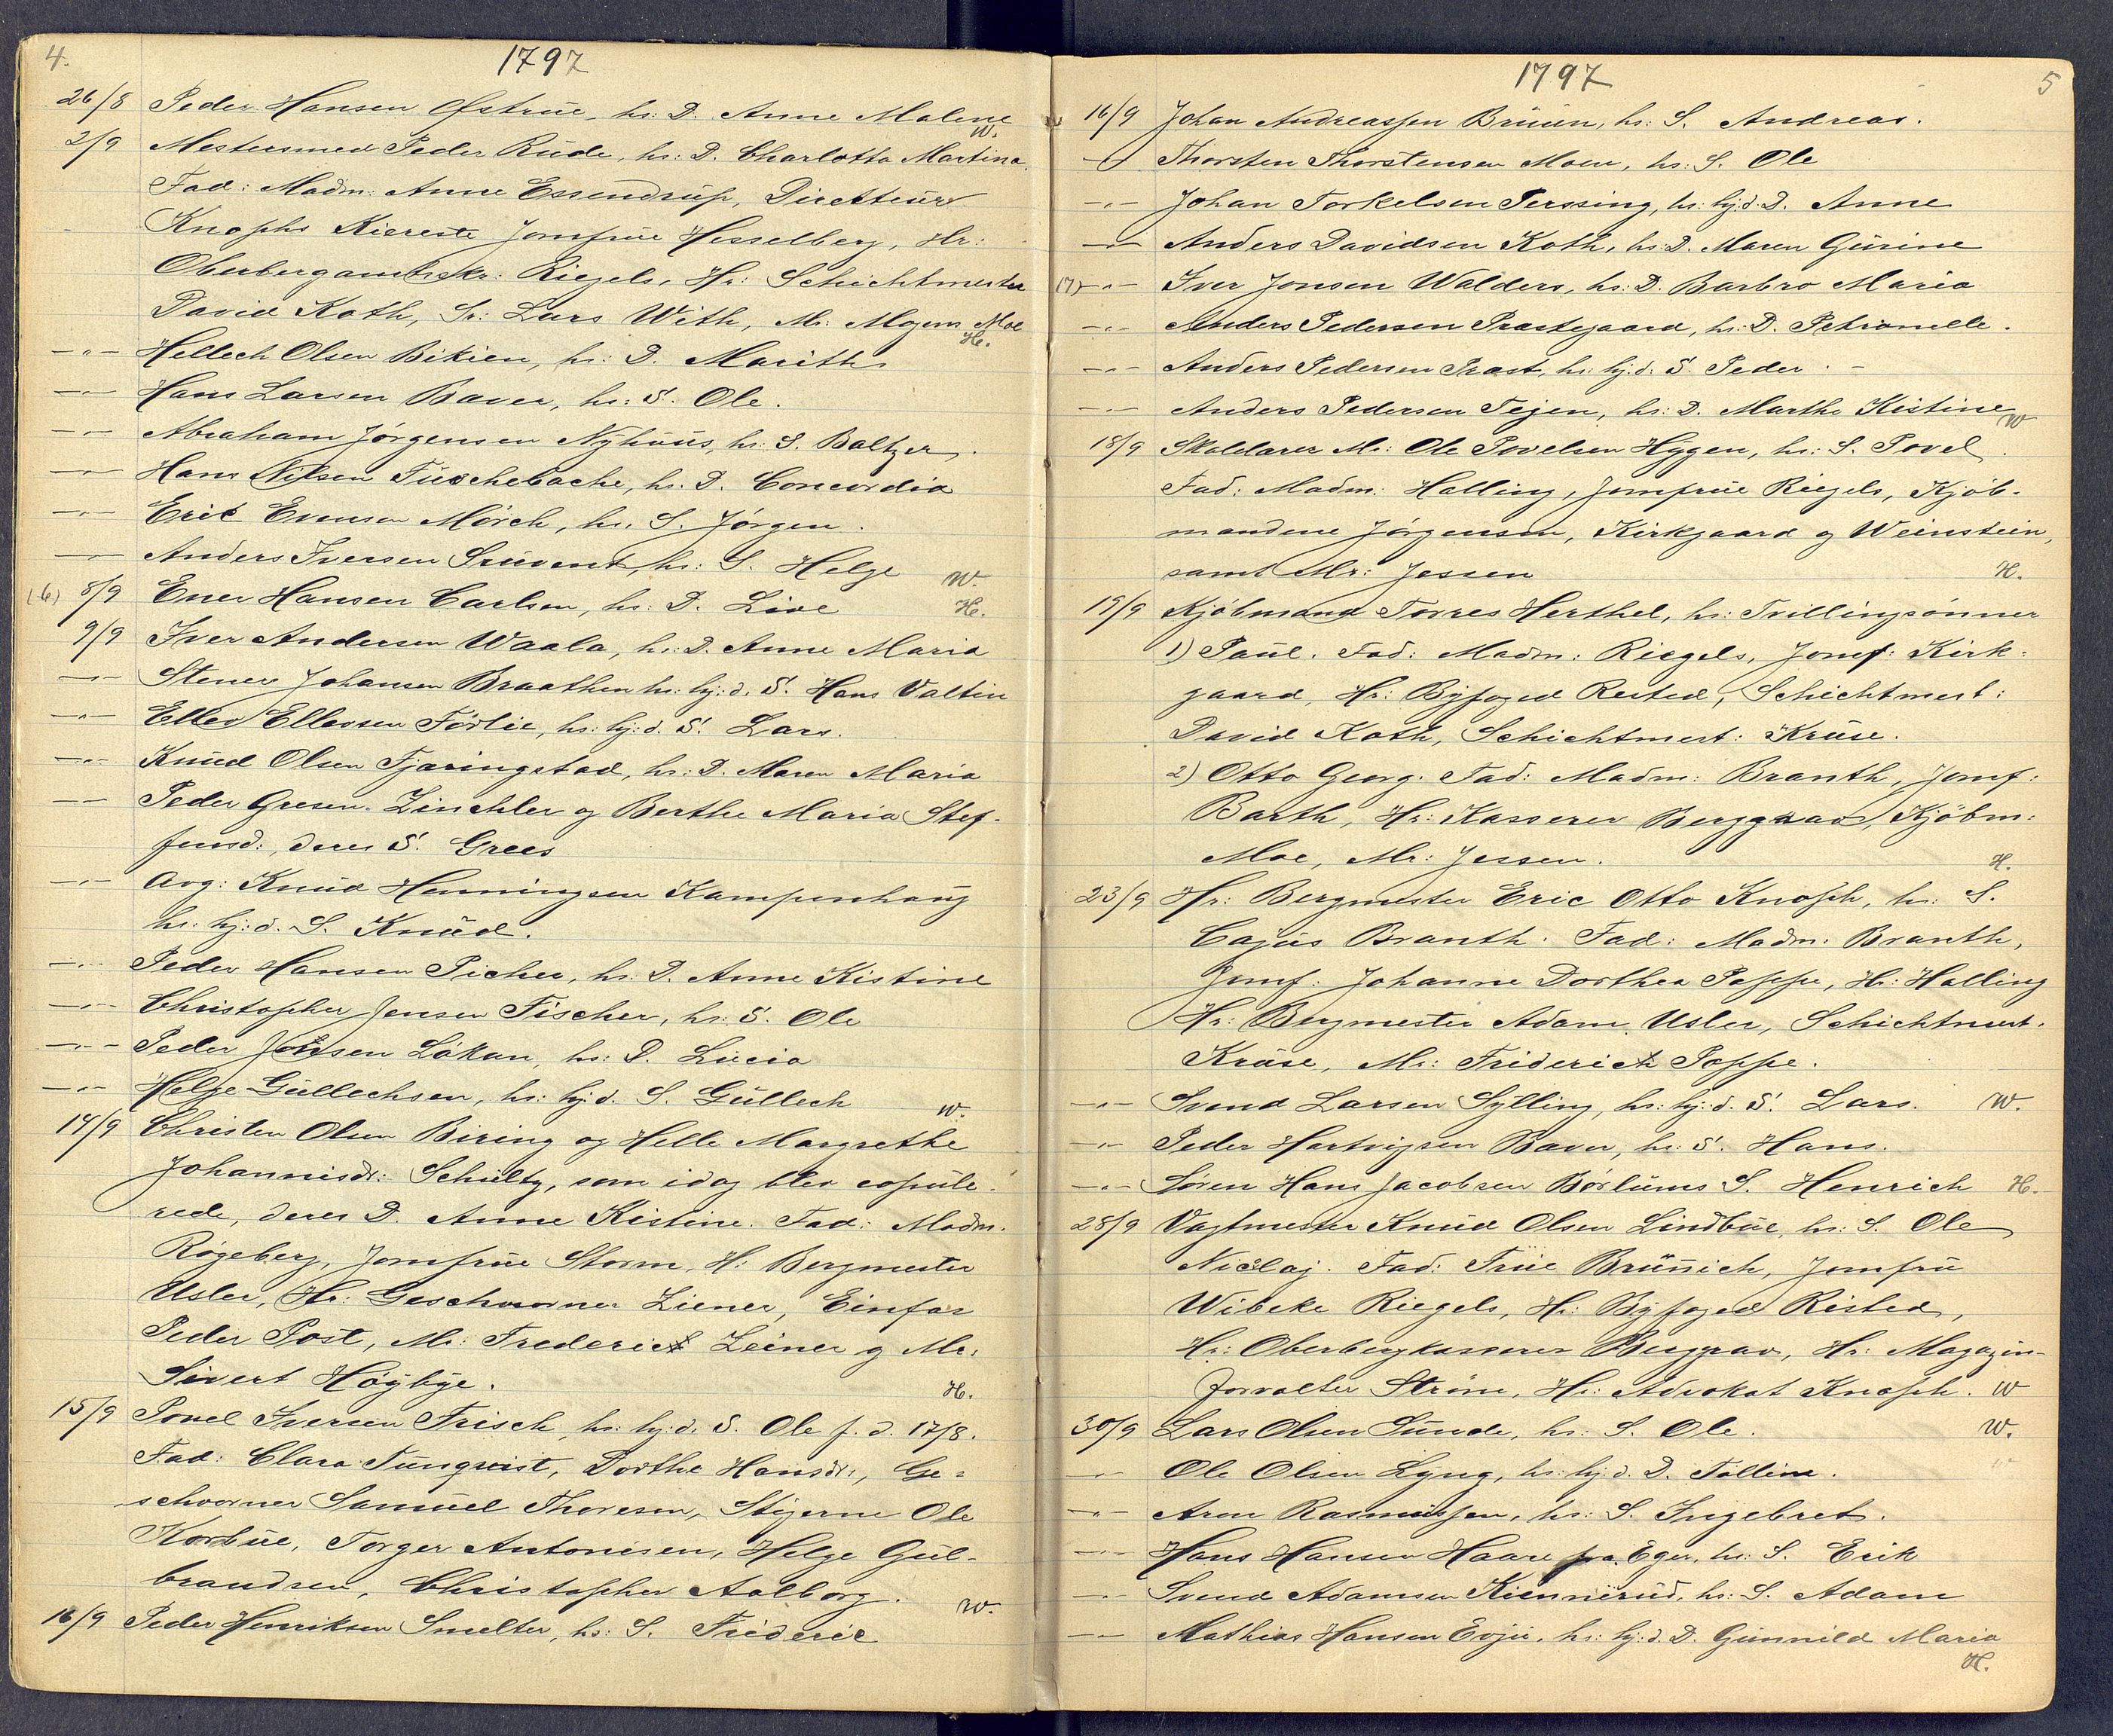 4.
1797
26/8 Peder Hansen Ofstrue, hs: D. Anne Malene
W.
2/9 Mestersmed Peder Rude, hs: D. Charlotta Martina.
Fad: Madm: Anne Essendrup, Directteur
Knophs Kiereste Jomfrue Hesselberg, Hr:
Oberbergamtsskr: Riegels, Hr: Schichtmester
David Koth, Sr: Lars With, Mr: Mogens Moe
H.
—"— Hellech Olsen Bikien, hs: D. Marith
—"— Hans Larsen Baver, hs: S. Ole.
—"— Abraham Jörgensen Nÿhuus, hs: S. Baltzer.
—"— Hans Nilsen Fuschebache, hs. D. Concordia
—"— Eric Evensen Mörch, hs. S. Jörgen.
—"— Anders Iversen Suvent, hs: S. Helge W.
(6) 8/9 Ener Hansen Carlsen, hs: D. Live H.
9/9 Iver Andersen Waala, hs: D. Anne Maria
—"— Stener Johansen Braathen hs: hj: d. S. Hans Valtin
—"— Ellev Ellevsen Förlie, hs: hj: d. S. Lars.
—"— Knud Olsen Fjæringstad, hs: D. Maren Maria
—"— Peder Gresen Zinchler og Berthe Maria Stef-
fensd:, deres S. Grees
—"— Avg: Knud Henningsen Kampenhaug
hs: hj: d. S. Knud.
—"— Peder Hansen Picher, hs: D. Anne Kistine
—"— Christopher Jensen Fischer, hs: S. Ole
—"— Peder Jonsen Lökan, hs: D. Lucia
—"— Helge Gullechsen, hs: hj: d. S. Gullech W.
14/9 Christen Olsen Biring og Helle Margrethe
Johannisdr: Schultz, som idag blev copule-
rede, deres D. Anne Kistine. Fad: Madm.
Rögeberg, Jomfrue Storm, H: Bergmester
Usler, Hr: Geschworner Ziener, Einfar
Peder Post, Mr: Frederick Zeiner og Mr.
Sivert Höÿbÿe. H.
15/9 Povel Iversen Frisch, hs: hj: d. S. Ole f. d. 17/8.
Fad: Clara Tunqvist, Dorthe Hansdr:, Ge-
schworner Samuel Thoresen, Stigerne Ole
Korbue, Torger Antonisen, Helge Gul-
brandsen, Christopher Aalborg. W.
16/9 Peder Henriksen Smelter, hs: S. Frideric
1797
5
16/9 Johan Andreassen Bruun, hs: S. Andreas.
—"— Thorsten Thorstensen Moen, hs: S. Ole
—"— Johan Torkelsen Terssing, hs: hj: d. D. Anne
—"— Anders Davidsen Koth, hs: D. Maren Gurine
(7) —"— Iver Jonsen Walders, hs: D. Barbro Maria
—"— Anders Pedersen Præstegaard, hs: D. Petronelle.
—"— Anders Pedersen Præst, hs: hj: d. S. Peder.
—"— Anders Pedersen Tejen, hs: D. Marthe Kistine
W
18/9 Skolelærer Mr: Ole Povelsen Hÿgen, hs: S. Povel.
Fad: Madm: Halling, Jomfrue Riegels, Kjöb-
mændene Jörgensen, Kirkgaard og Weinstein,
samt Mr: Jessen H.
19/9 Kjöbmand Torres Herthel, hs: Tvillingsönner
1) Paul. Fad: Madm: Riegels, Jomf: Kirk-
gaard, Hr: Bÿfoged Rested, Schichtmest:
David Koth, Schichtmest: Kruse.
2) Otto Georg. Fad: Madm: Branth, Jomf:
Barth, Hr: Kasserer Berggrav, Kjöbm:
Moe, Mr: Jessen. H.
23/9 Hr: Bergmester Eric Otto Knoph, hs: S.
Cajus Branth. Fad: Madm: Branth,
Jomf: Johanne Dorthea Poppe, Hr: Halling
Hr: Bergmester Adam Usler, Schichtmest.
Kruse, Mr: Friderich Poppe.
—"— Svend Larsen Sÿlling, hs: hj: d. S. Lars. W.
—"— Peder Hartvigsen Baver, hs: S. Hans.
—"— Sören Hans Jacobsen Börlums S. Henrich H.
28/9 Vagtmester Knud Olsen Lindbue, hs: S. Ole
Nicolaj. Fad: Frue Brünich, Jomfru
Wibeke Riegels, Hr: Bÿfoged Risted,
Hr: Oberbergkasserer Berggrav, Hr: Magazin-
forvalter Ström, Hr: Advokat Knoph. W
30/9 Lars Olsen Sunde, hs: S. Ole. W.
—"— Ole Olsen Lyng, hs: hj: d. D. Tolline.
—"— Aron Rasmussen, hs: S. Ingebret.
—"— Hans Hansen Haare fra Eger, hs: S. Erik
—"— Svend Adamsen Kiennerud, hs: S. Adam
—"— Mathias Hansen Evju, hs: hj: d. D. Gunnild Maria
H.